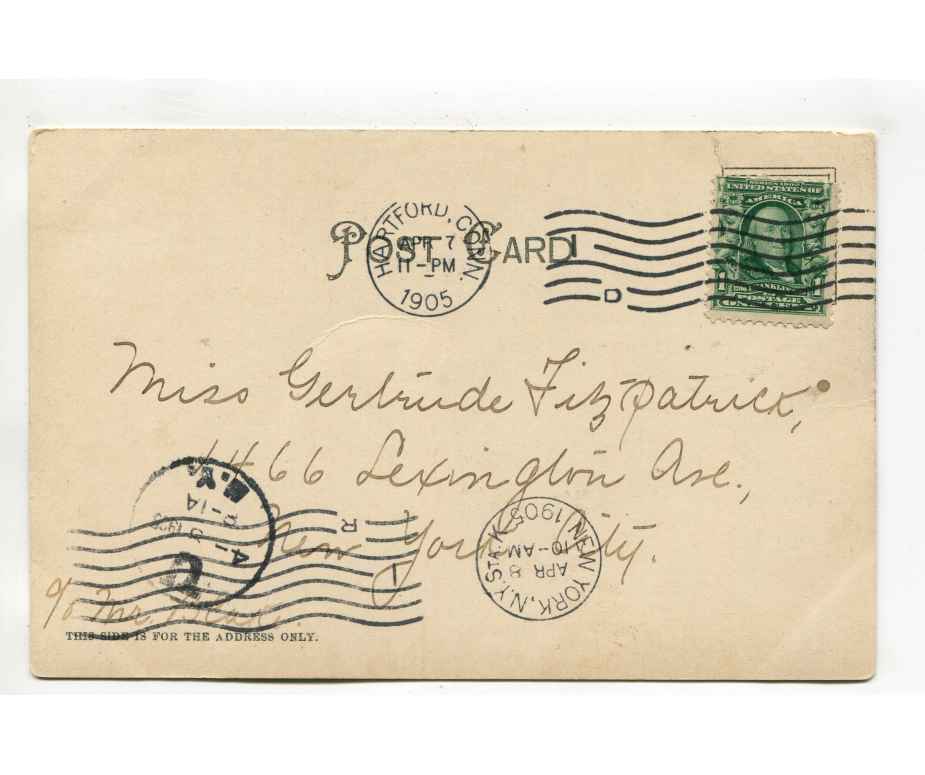 POST CARD
HARTFORD, CONN.
APR 7
11-PM
1905
D
SERIES 1902
UNITED STATES OF
AMERICA
1 FRANKLIN 1
POSTAGE
ONE CENT
Miss Gertrude Fitzpatrick,
1466 Lexington Ave.,
New York City.
NEW YORK, N.Y. STA. K
APR 8
10-AM
1905
N.Y.
4-
8
1905
R
c/o Mr.
THIS SIDE IS FOR THE ADDRESS ONLY.